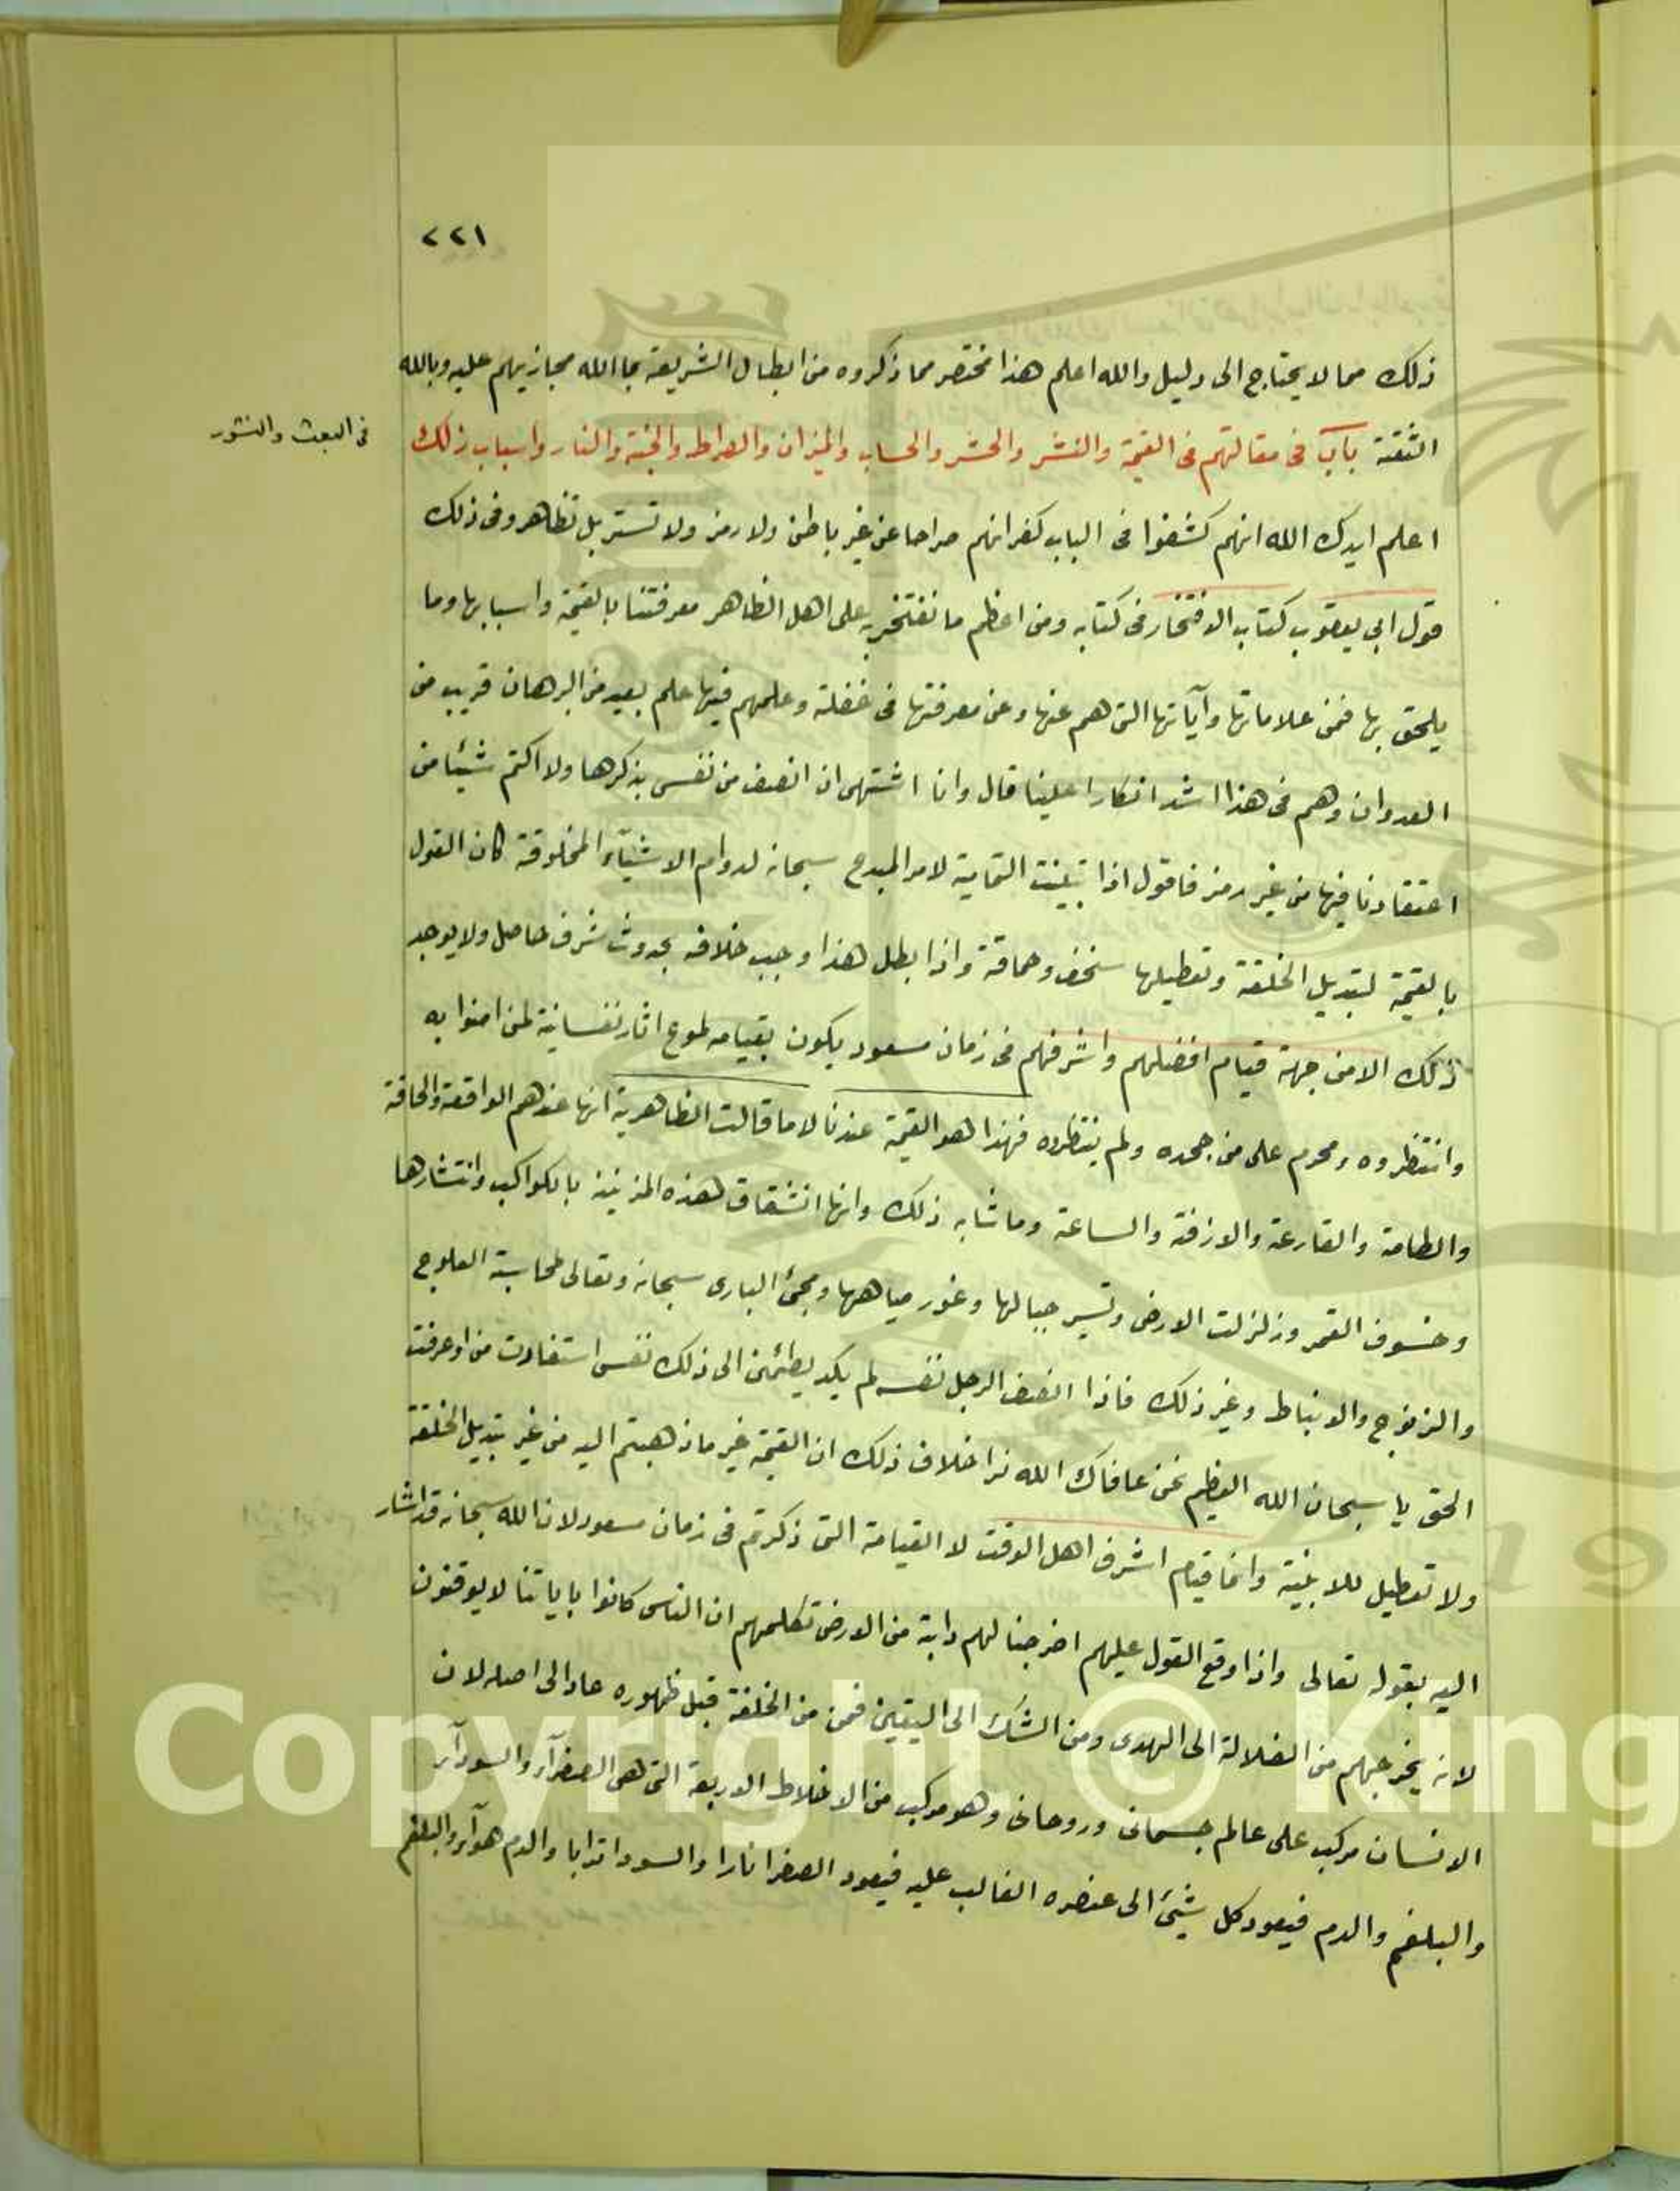 ٢٢١
ذلك مما لا يحتاج الى دليل والله اعلم هذا مختصر مما ذكروه من ابطال الشريعة بما الله مجازيهم عليه وبالله
فى البعث والنشور
الثقة باب فى مقالتهم فى القيمة والنشر والحشر والحساب والميزان والصراط والجنة والنار واسباب ذلك
اعلم ايدك الله انهم كشفوا فى الباب كفرانهم صراحا عن غير باطن ولا رمز ولا تستر بل تظاهروفى ذلك
قول ابي يعقوب كتاب الافتخار فى كتابه ومن اعظم ما نفتخر به على اهل الظاهر معرفتنا بالقيمة واسبابها وما
يلحق بها فمن علاماتها وآياتها التى هم عنها وعن معرفتها فى غفلة وعلمهم فيها علم بعيد من البرهان قريب من
العدوان وهم فى هذا اشد انكارا علينا قال وانا اشتهى ان انصف من نفسى بذكرها ولا اكتم شيئا من
اعتقادنا فيها من غير رمز فاقول اذا تبينت التمامية لامر المبدع سبحانه لدوام الاشيآء المخلوقة كان القول
بالقيمة لتبديل الخلقة وتعطيلها سخف وحماقة واذا بطل هذا وجب خلافه بحدوث شرف حاصل ولا يوجد
ذلك الا من جهة قيام افضلهم واشرفهم فى زمان مسعود يكون بقيامه طموع اثار نفسانية لمن امنوا به
وانتظروه ومحرم على من جحده ولم ينتظروه فهذا هو القيمة عندنا لا ما قالت الظاهرية انها عندهم الواقعة والحاقة
والطامة والقارعة والازفة والساعة وما شابه ذلك وانها انشقاق لهذه المزينة بالكواكب وانتشارها
وخسوف القمر وزلزلت الارض وتسير جبالها وغور مياهها ومجئ البارى سبحانه وتعالى لمحاسبة العلوج
والزنوج والانباط وغير ذلك فاذا انصف الرجل نفسه لم يكد يطمئن الى ذلك نفس استفادت من اوعرفت
الحق يا سبحان الله العظيم نحن عافاك الله نرا خلاف ذلك ان القيمة غير ما ذهبتم اليه من غير تبديل الخلقة
ولا تعطيل للابنية وانما قيام اشرف اهل الوقت لا القيامة التى ذكرتم فى زمان مسعود لان الله سبحانه قد اشار
اليه بقوله تعالى واذا وقع القول عليهم اخرجنا لهم دابة من الارض تكلمهم ان الناس كانوا باياتنا لا يوقنون
لانه يخرجهم من الضلالة الى الهدى ومن الشك الى اليقين فمن من الخلقة قبل ظهوره عاد الى اصله لان
الانسان مركب على عالم جسمانى وروحانى وهو مركب من الاخلاط الاربعة التى هى الصفرآء والسودآء
والبلغم والدم فيعود كل شئ الى عنصره الغالب عليه فيعود الصفرا نارا والسودا ترابا والدم هوآء والبلغم
Copyright © King